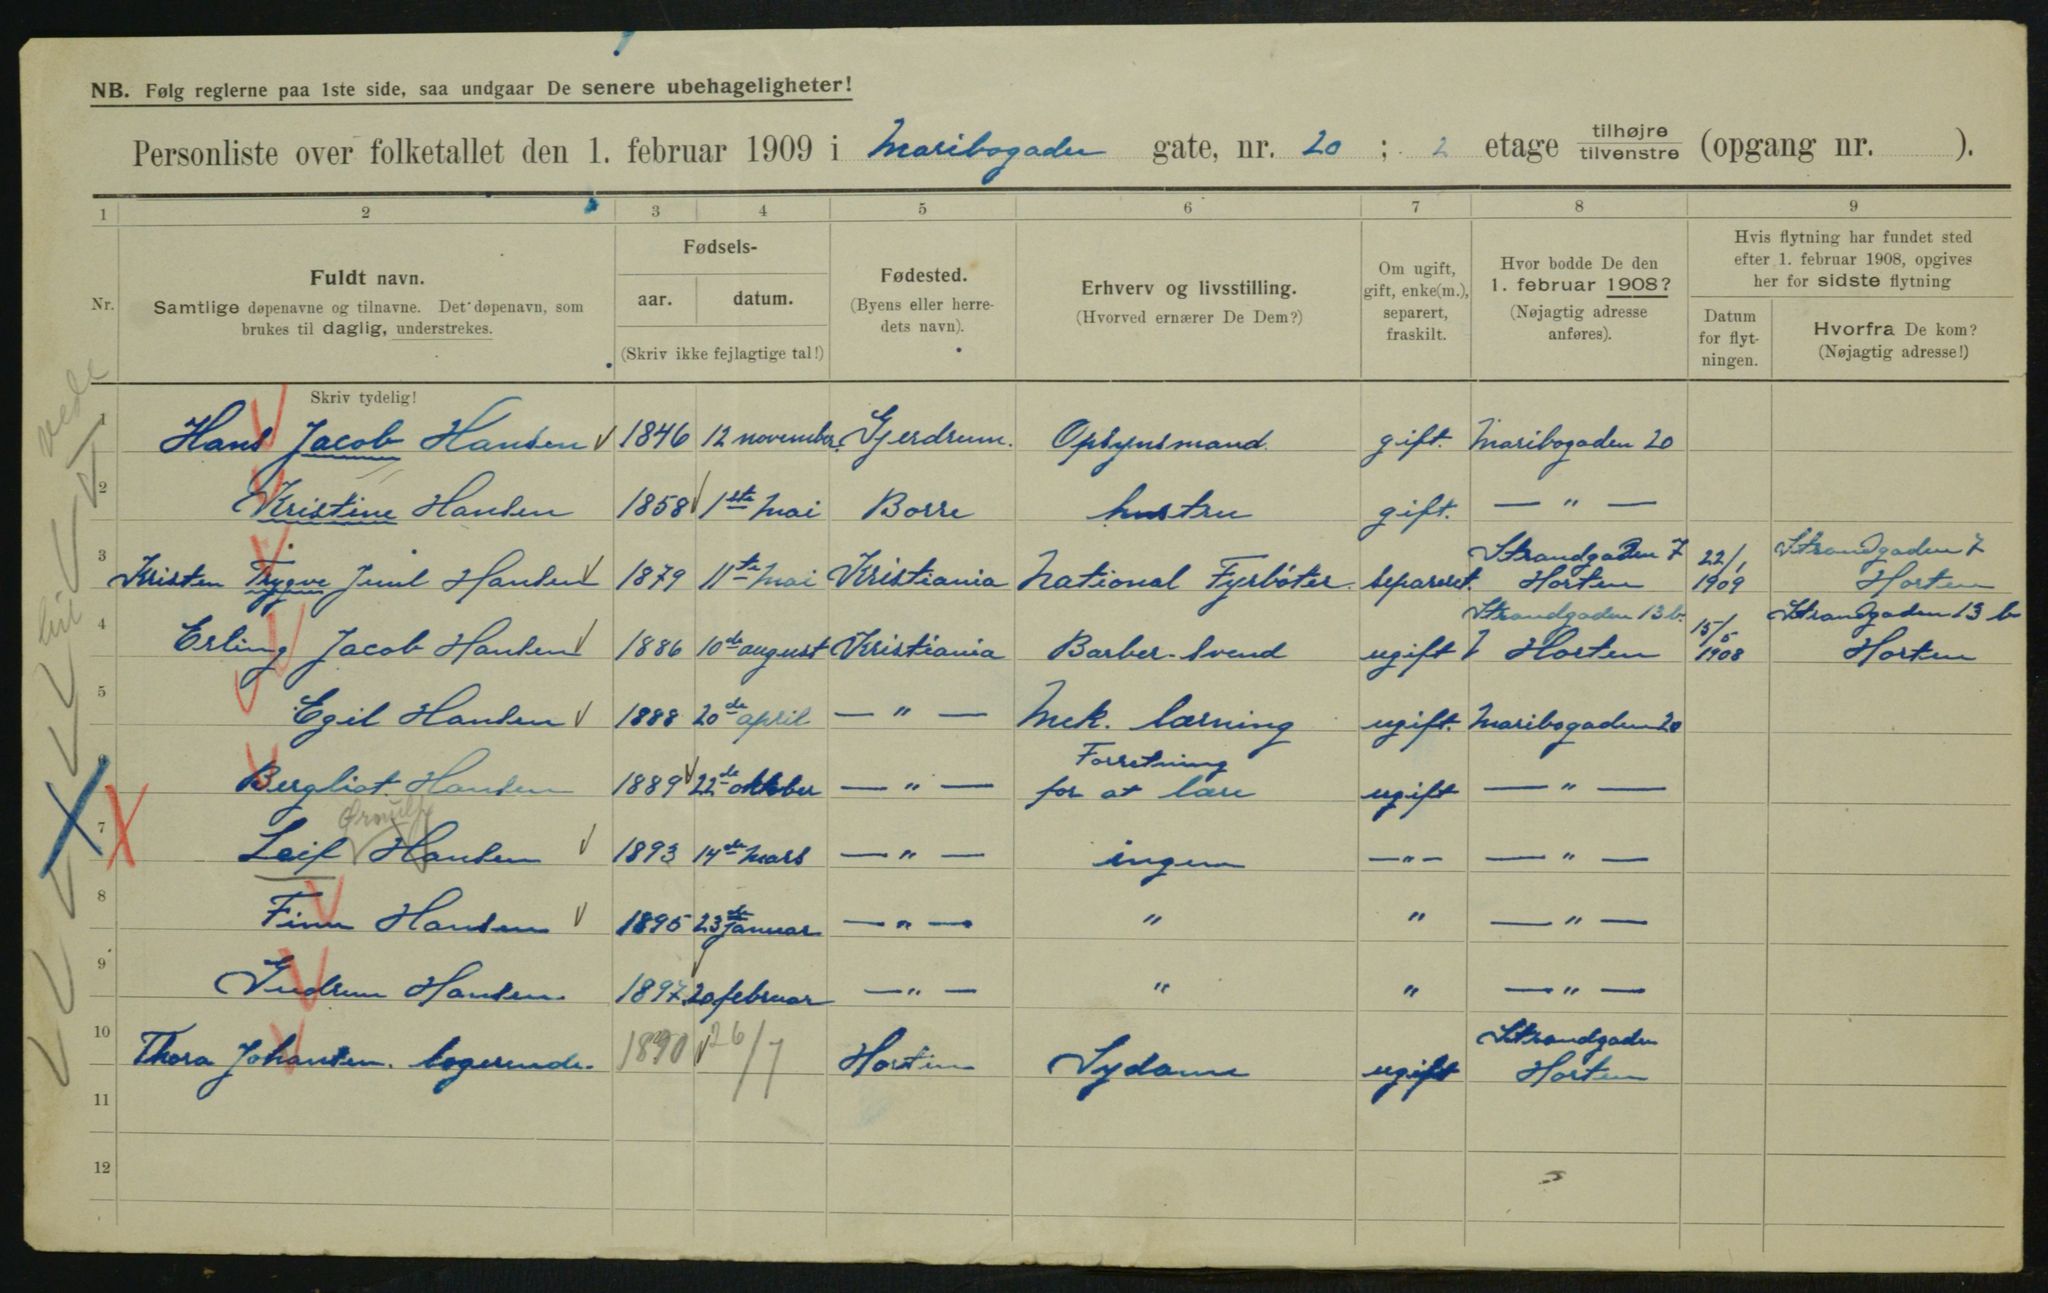 NB. Følg reglerne paa 1ste side, saa undgaar De senere ubehageligheter!
Personliste over folketallet den 1. februar 1909 i Maribogaden gate, nr. 20 ; 2 etage tilhøjre tilvenstre (opgang nr. ).
1 2 3 4 5 6 7 8 9
Nr. Fuldt navn. Samtlige døpenavne og tilnavne. Det døpenavn, som brukes til daglig, understrekes.
Fødsels- aar. datum. (Skriv ikke fejlagtige tal!)
Fødested. (Byens eller herredets navn).
Erhverv og livsstilling. (Hvorved ernærer De Dem?)
Om ugift, gift, enke(m.), separert, fraskilt.
Hvor bodde De den 1. februar 1908? (Nøjagtig adresse anføres).
Hvis flytning har fundet sted efter 1. februar 1908, opgives her for sidste flytning
Datum for flytningen. Hvorfra De kom? (Nøjagtig adresse!)
Skriv tydelig!
1 Hans Jacob Hansen 1846 12 november Gjerdrum. Opsynsmand. gift. Maribogaden 20
2 Kristine Hansen 1858 1ste mai Borre hustru gift. — " —
3 Kristen Trygve Hansen 1879 11te mai Kristiania National Fyrbøter. separeret. Strandgaden 7 Horten 22/1 1909 Strandgaden 7 Horten
4 Erling Jacob Hansen 1886 10de august Kristiania Barber-Svend ugift Strandgaden 13 b. Horten 15/5 1908 Strandgaden 13 b Horten
5 Egil Hansen 1888 20de april — " — Mek. lærning ugift. Maribogaden 20
6 Bergliot Hansen 1889 22de oktober — " — Forretning for at lære ugift — " —
7 Leif Hansen 1893 14de mars — " — ingen — " — — " —
8 Finn Hansen 1895 23de januar — " — " " — " —
9 Gudrun Hansen. 1897 20 februar — " — " " — " —
10 Thora Johansen. logerende. 1890 26/7 Horten Sydame ugift Strandgaden Horten
11
12